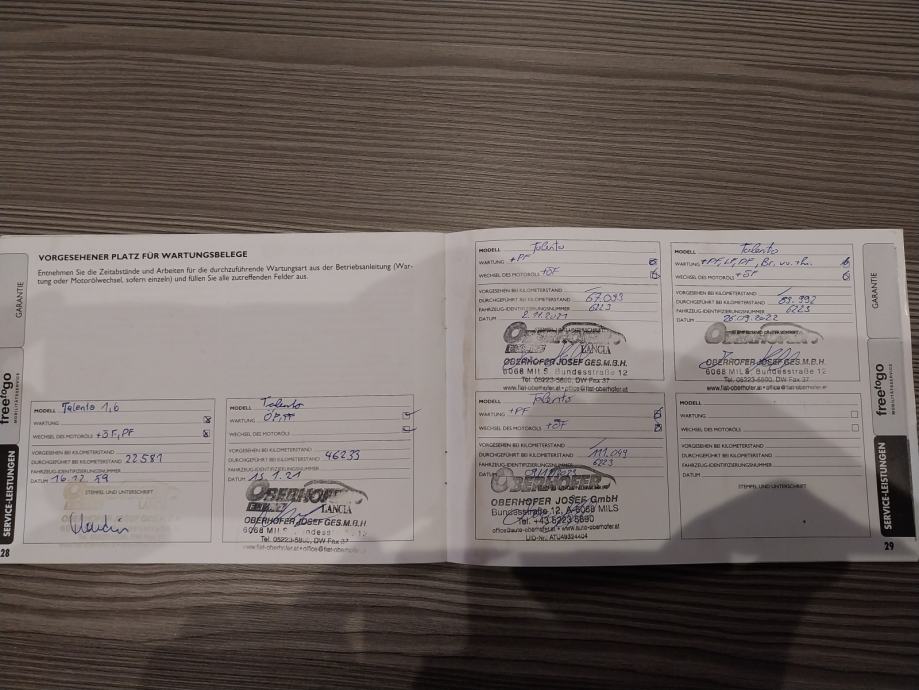 VORGESEHENER PLATZ FÜR WARTUNGSBELEGE
Entnehmen Sie die Zeitabstände und Arbeiten für die durchzuführende Wartungsart aus der Betriebsanleitung (War-
tung oder Motorölwechsel, sofern einzeln) und füllen Sie alle zutreffenden Felder aus.
GARANTIE
freetogo
MOBILITÄTSSERVICE
SERVICE-LEISTUNGEN
28
MODELL Talento 1,6
WARTUNG
WECHSEL DES MOTORÖLS +ÖF, PF
VORGESEHEN BEI KILOMETERSTAND
DURCHGEFÜHRT BEI KILOMETERSTAND 22581
FAHRZEUG-IDENTIFIZIERUNGSNUMMER
DATUM 16.12.19
STEMPEL UND UNTERSCHRIFT
MODELL Talento
WARTUNG
WECHSEL DES MOTORÖLS
VORGESEHEN BEI KILOMETERSTAND
DURCHGEFÜHRT BEI KILOMETERSTAND 46233
FAHRZEUG-IDENTIFIZIERUNGSNUMMER
DATUM 15.1.21
OBERHOFER
LANCIA
OBERHOFER JOSEF GES.M.B.H.
6068 MILS 12
Tel. 05223-5890, DW Fax 37
www.fiat-oberhofer.at • office@fiat-oberhofer.at
MODELL Talento
WARTUNG +PF
WECHSEL DES MOTORÖLS +ÖF
VORGESEHEN BEI KILOMETERSTAND
DURCHGEFÜHRT BEI KILOMETERSTAND 67.093
FAHRZEUG-IDENTIFIZIERUNGSNUMMER 6223
DATUM 2.11.2021
OBERHOFER
LANCIA
OBERHOFER JOSEF GES.M.B.H.
6068 MILS, Bundesstraße 12
Tel. 05223-5890, DW Fax 37
www.fiat-oberhofer.at • office@fiat-oberhofer.at
MODELL Talento
WARTUNG +PF, LF, DF, Br.
WECHSEL DES MOTORÖLS +ÖF
VORGESEHEN BEI KILOMETERSTAND
DURCHGEFÜHRT BEI KILOMETERSTAND 89.992
FAHRZEUG-IDENTIFIZIERUNGSNUMMER 6223
DATUM 26.09.2022
OBERHOFER
OBERHOFER JOSEF GES.M.B.H.
6068 MILS, Bundesstraße 12
Tel. 05223-5890, DW Fax 37
www.fiat-oberhofer.at • office@fiat-oberhofer.at
MODELL Talento
WARTUNG +PF
WECHSEL DES MOTORÖLS +ÖF
VORGESEHEN BEI KILOMETERSTAND
DURCHGEFÜHRT BEI KILOMETERSTAND 111.099
FAHRZEUG-IDENTIFIZIERUNGSNUMMER 6223
DATUM
OBERHOFER
OBERHOFER JOSEF GmbH
Bundesstraße 12, A-6068 MILS
Tel. +43 5223 5890
office@auto-oberhofer.at • www.auto-oberhofer.at
UID-Nr.: ATU49324404
MODELL
WARTUNG
WECHSEL DES MOTORÖLS
VORGESEHEN BEI KILOMETERSTAND
DURCHGEFÜHRT BEI KILOMETERSTAND
FAHRZEUG-IDENTIFIZIERUNGSNUMMER
DATUM
STEMPEL UND UNTERSCHRIFT
GARANTIE
freetogo
MOBILITÄTSSERVICE
SERVICE-LEISTUNGEN
29